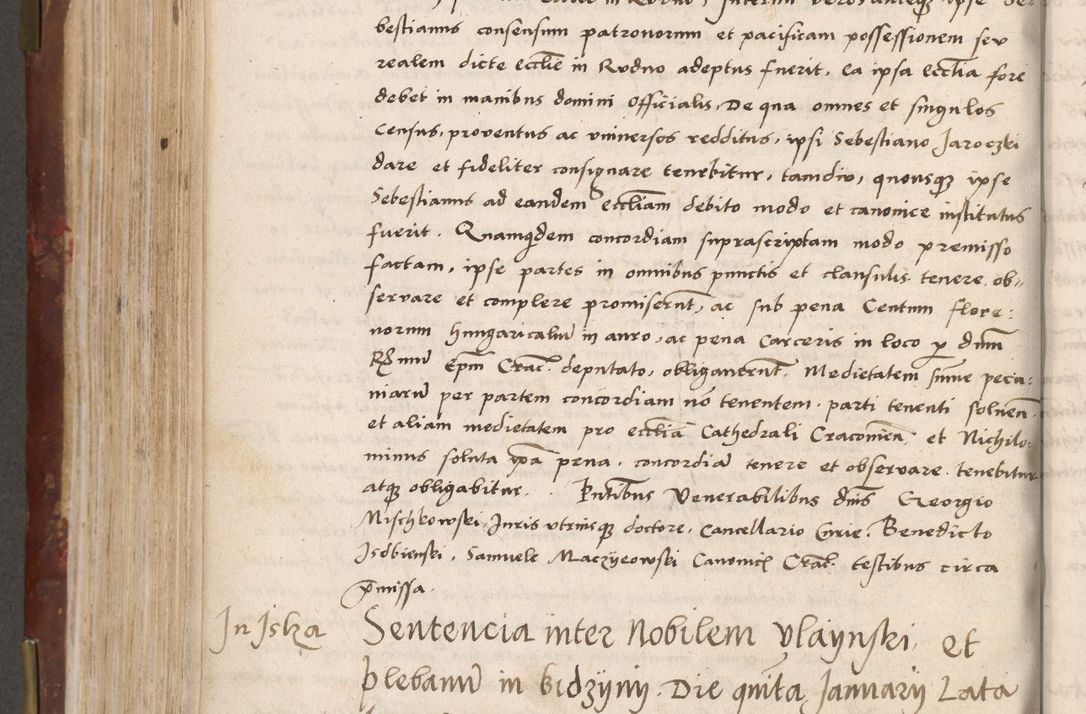 bestianus consensum patronorum et pacificam possessionem seu
realem dicte ecclie in Rudno adeptus fuerit, ea ipsa ecclia fore
debet in manibus domini officialis, De qua omnes et singulos
Census, proventus ac universos redditus, ipsi Sebestiano Jaroczki
dare et fideliter consignare tenebitur, tamdiu, quousq ipse
Sebestianus ad eandem eccliam debito modo et canonice institutus
fuerit. Quamqdem concordiam suprascriptam modo premisso
factam, ipse partes in omnibus punctis et clausulis tenere, ob-
servare et complere promiserut, ac sub pena Centum flore:
norum hungaricaliu in auro, ac pena Carceris in loco p dnm
Rmu Epm Crac. deputato, obliganerut. Medietatem sume pecu:
niaru per partem concordiam no tenentem, parti tenenti soluen.
et aliam medietatem pro ecclia Cathedrali Cracouien, et Nichilo-
minus soluta ipa pena, concordia tenere et observare tenebitur
atq obligabitur. Pntibus Venerabilibus dnis Georgio
Mischkowski, Juris utriusq doctore, Cancellario Curie, Benedicto
Isdbienski, Samuele Maczyeowski Canonic Crac. testibus circa
pmissa.
In Islza Sentencia inter Nobilem Vlaynski, et
plebanu in Gidzyny. Die quita Januarij Lata